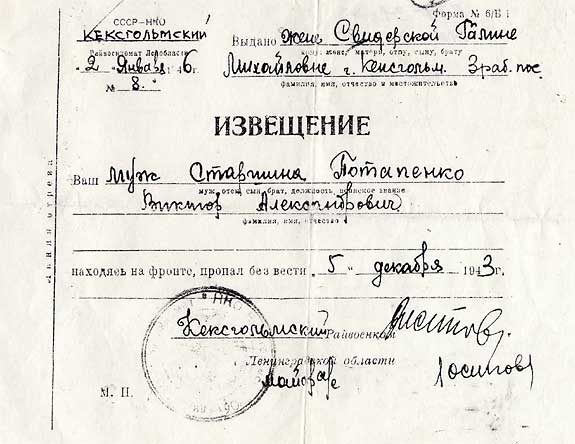 СССР–НКО
Форма № 6/Б 1
КЕКСГОЛЬМСКИЙ
Райвоенкомат Леноблясти
Выдано жене Свидерской Галине
кому: жене, матери, отцу, сыну, брату
"2" Января 1946 г.
№ 8.
Михайловне г. Кексгольм. 3 раб. пос.
фамилия, имя, отчество и местожительство
ИЗВЕЩЕНИЕ
Линия отреза
Ваш муж Старшина Потапенко
муж, отец, сын, брат, должность, воинское звание
Виктор Александрович
фамилия, имя, отчество
находясь на фронте, пропал без вести "5" декабря 1943 г.
НКО
Кексгольмский Райвоенком
Ленинградской области
майор
(Осипов)
М. П.